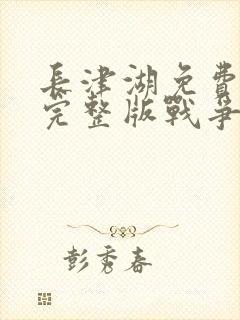 長津湖免費
完整版戰爭
彭秀春